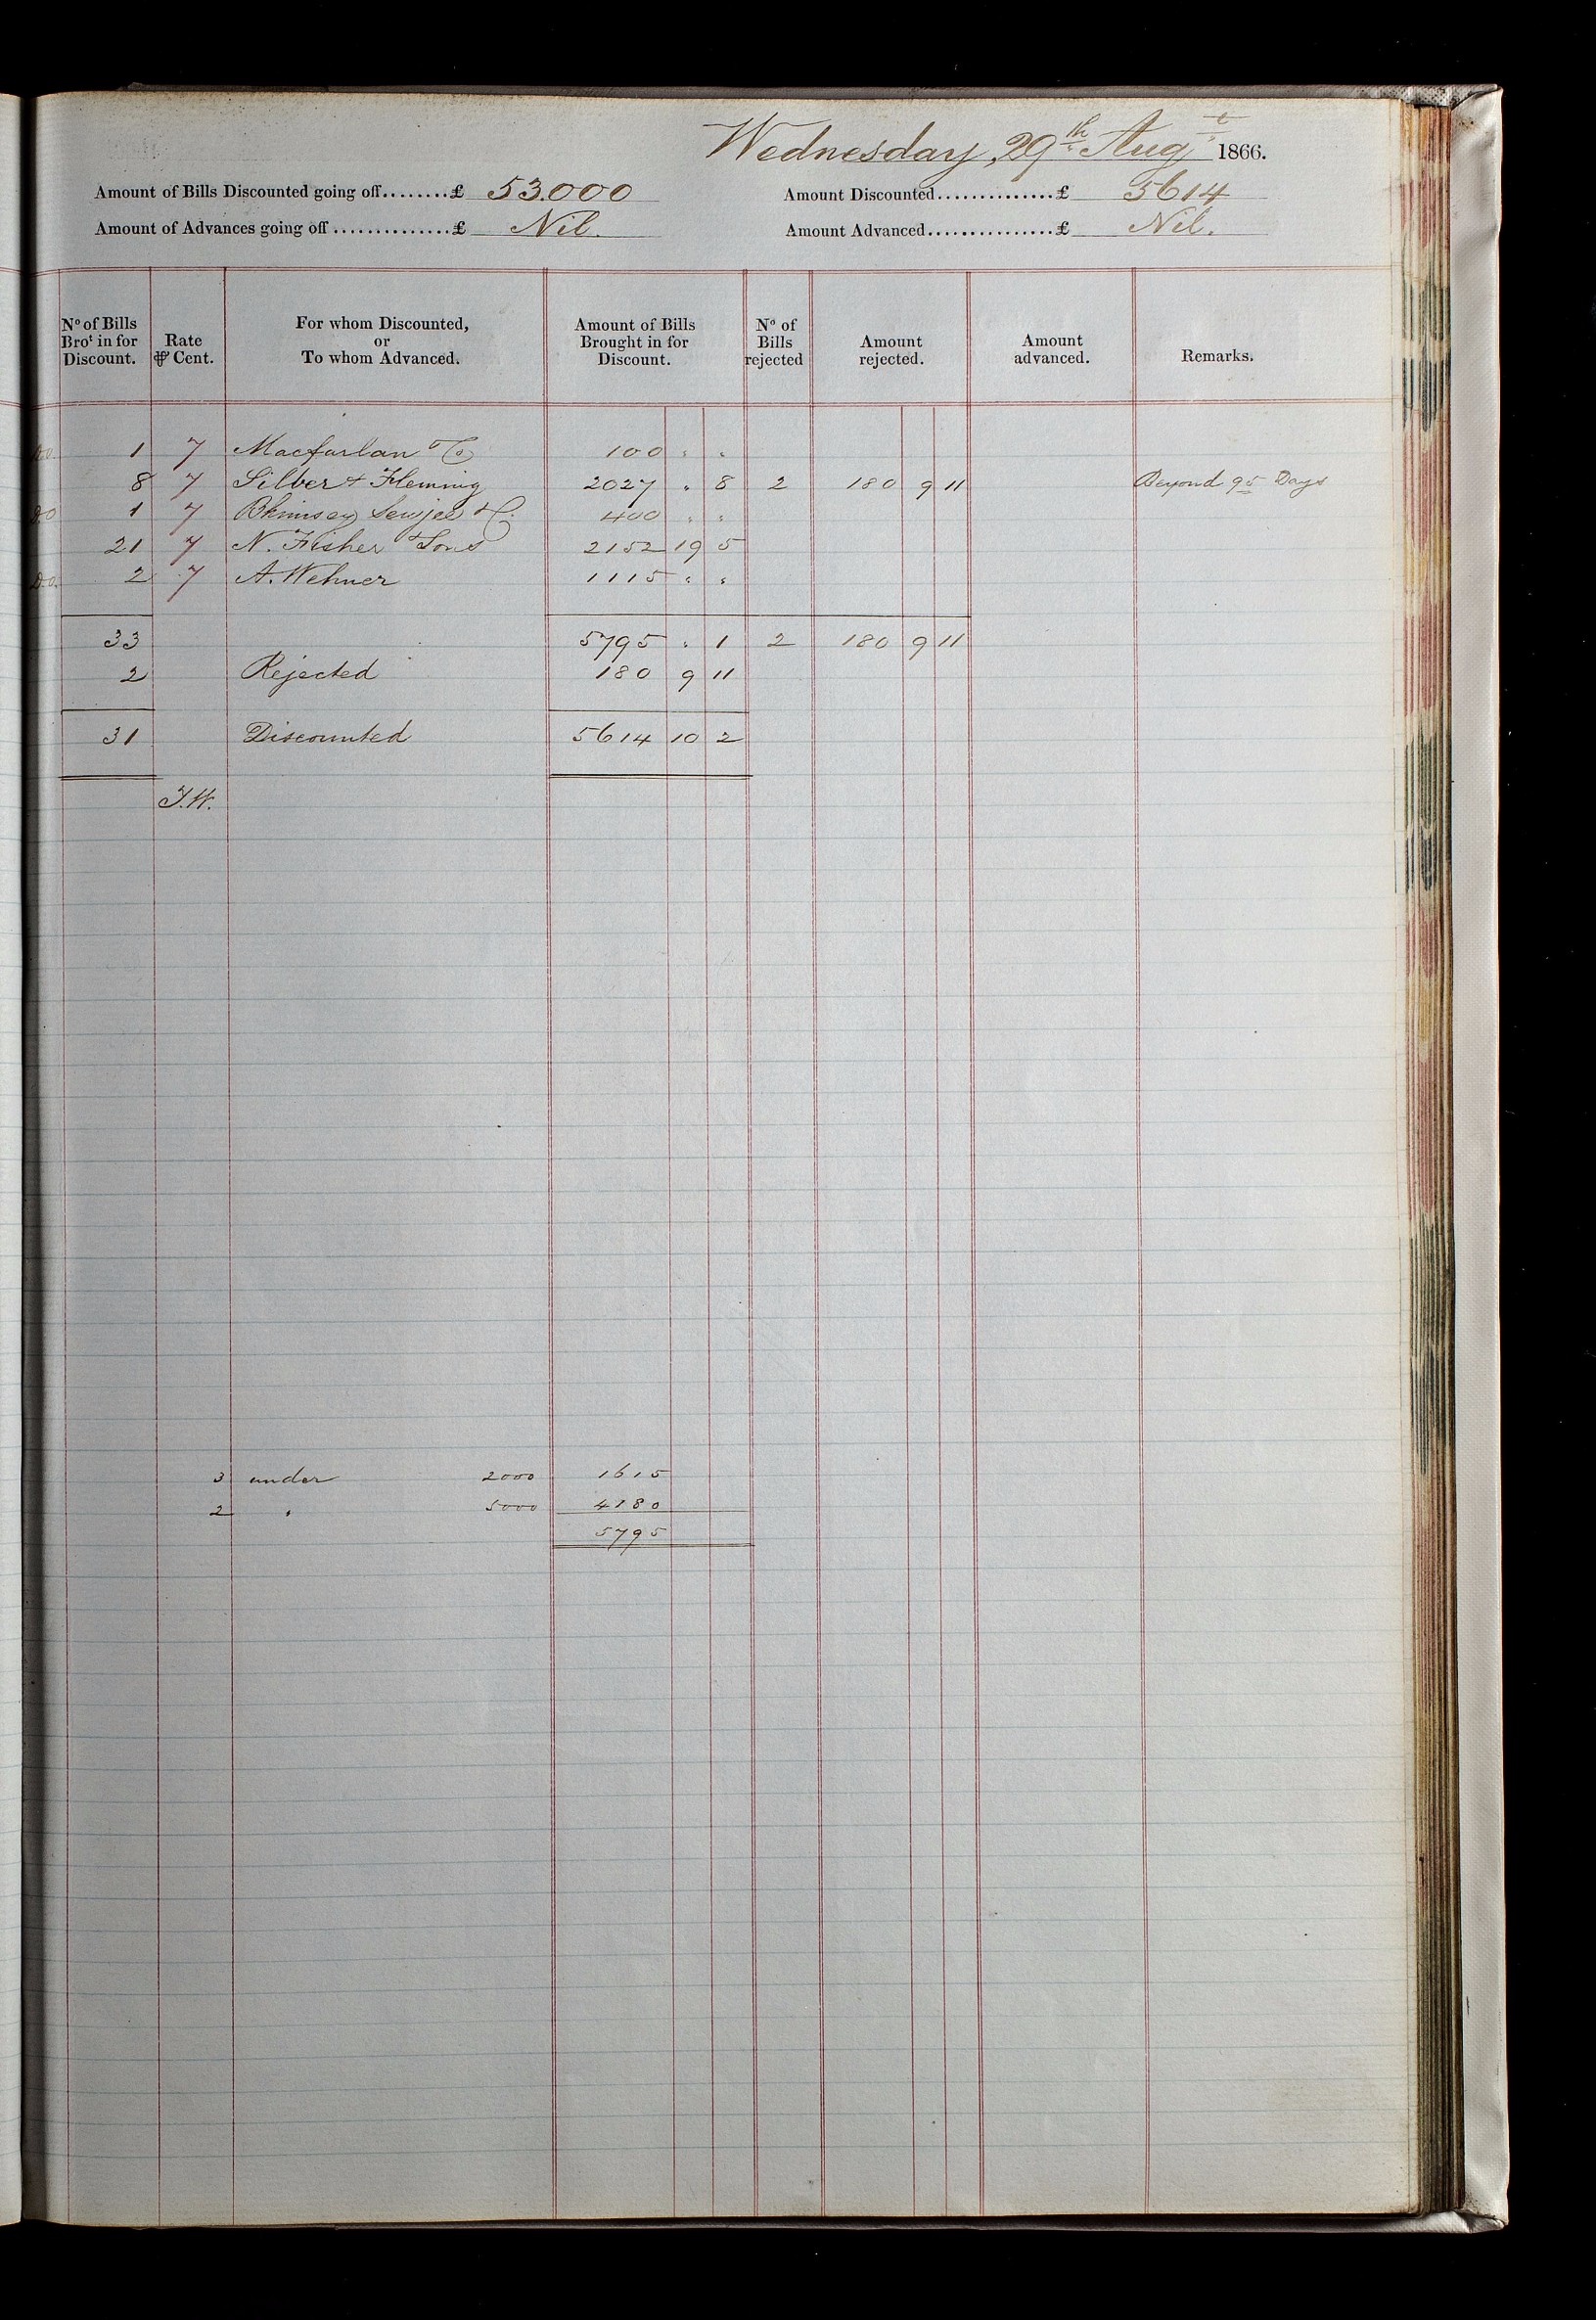 Wednesday, 29th Augt 1866.
Amount of Bills Discounted going off........£ 53.000 Amount Discounted..............£ 5614
Amount of Advances going off..............£ Nil. Amount Advanced...............£ Nil.
No of Bills Brot in for Discount. Rate ⅌ Cent. For whom Discounted, or To whom Advanced. Amount of Bills Brought in for Discount. No of Bills rejected Amount rejected. Amount advanced. Remarks.
Do. 1 7 Macfarlan & Co 100 " "
8 7 Silber & Fleming 2027 " 8 2 180 9 11 Beyond 95 Days
Do 1 7 & Co 400 " "
21 7 N. Fisher & Sons 2152 19 5
Do. 2 7 A. Wehner 1115 " "
33 5795 " 1 2 180 9 11
2 Rejected 180 9 11
31 Discounted 5614 10 2
3 under 2000 1615
2 " 5000 4180
5795